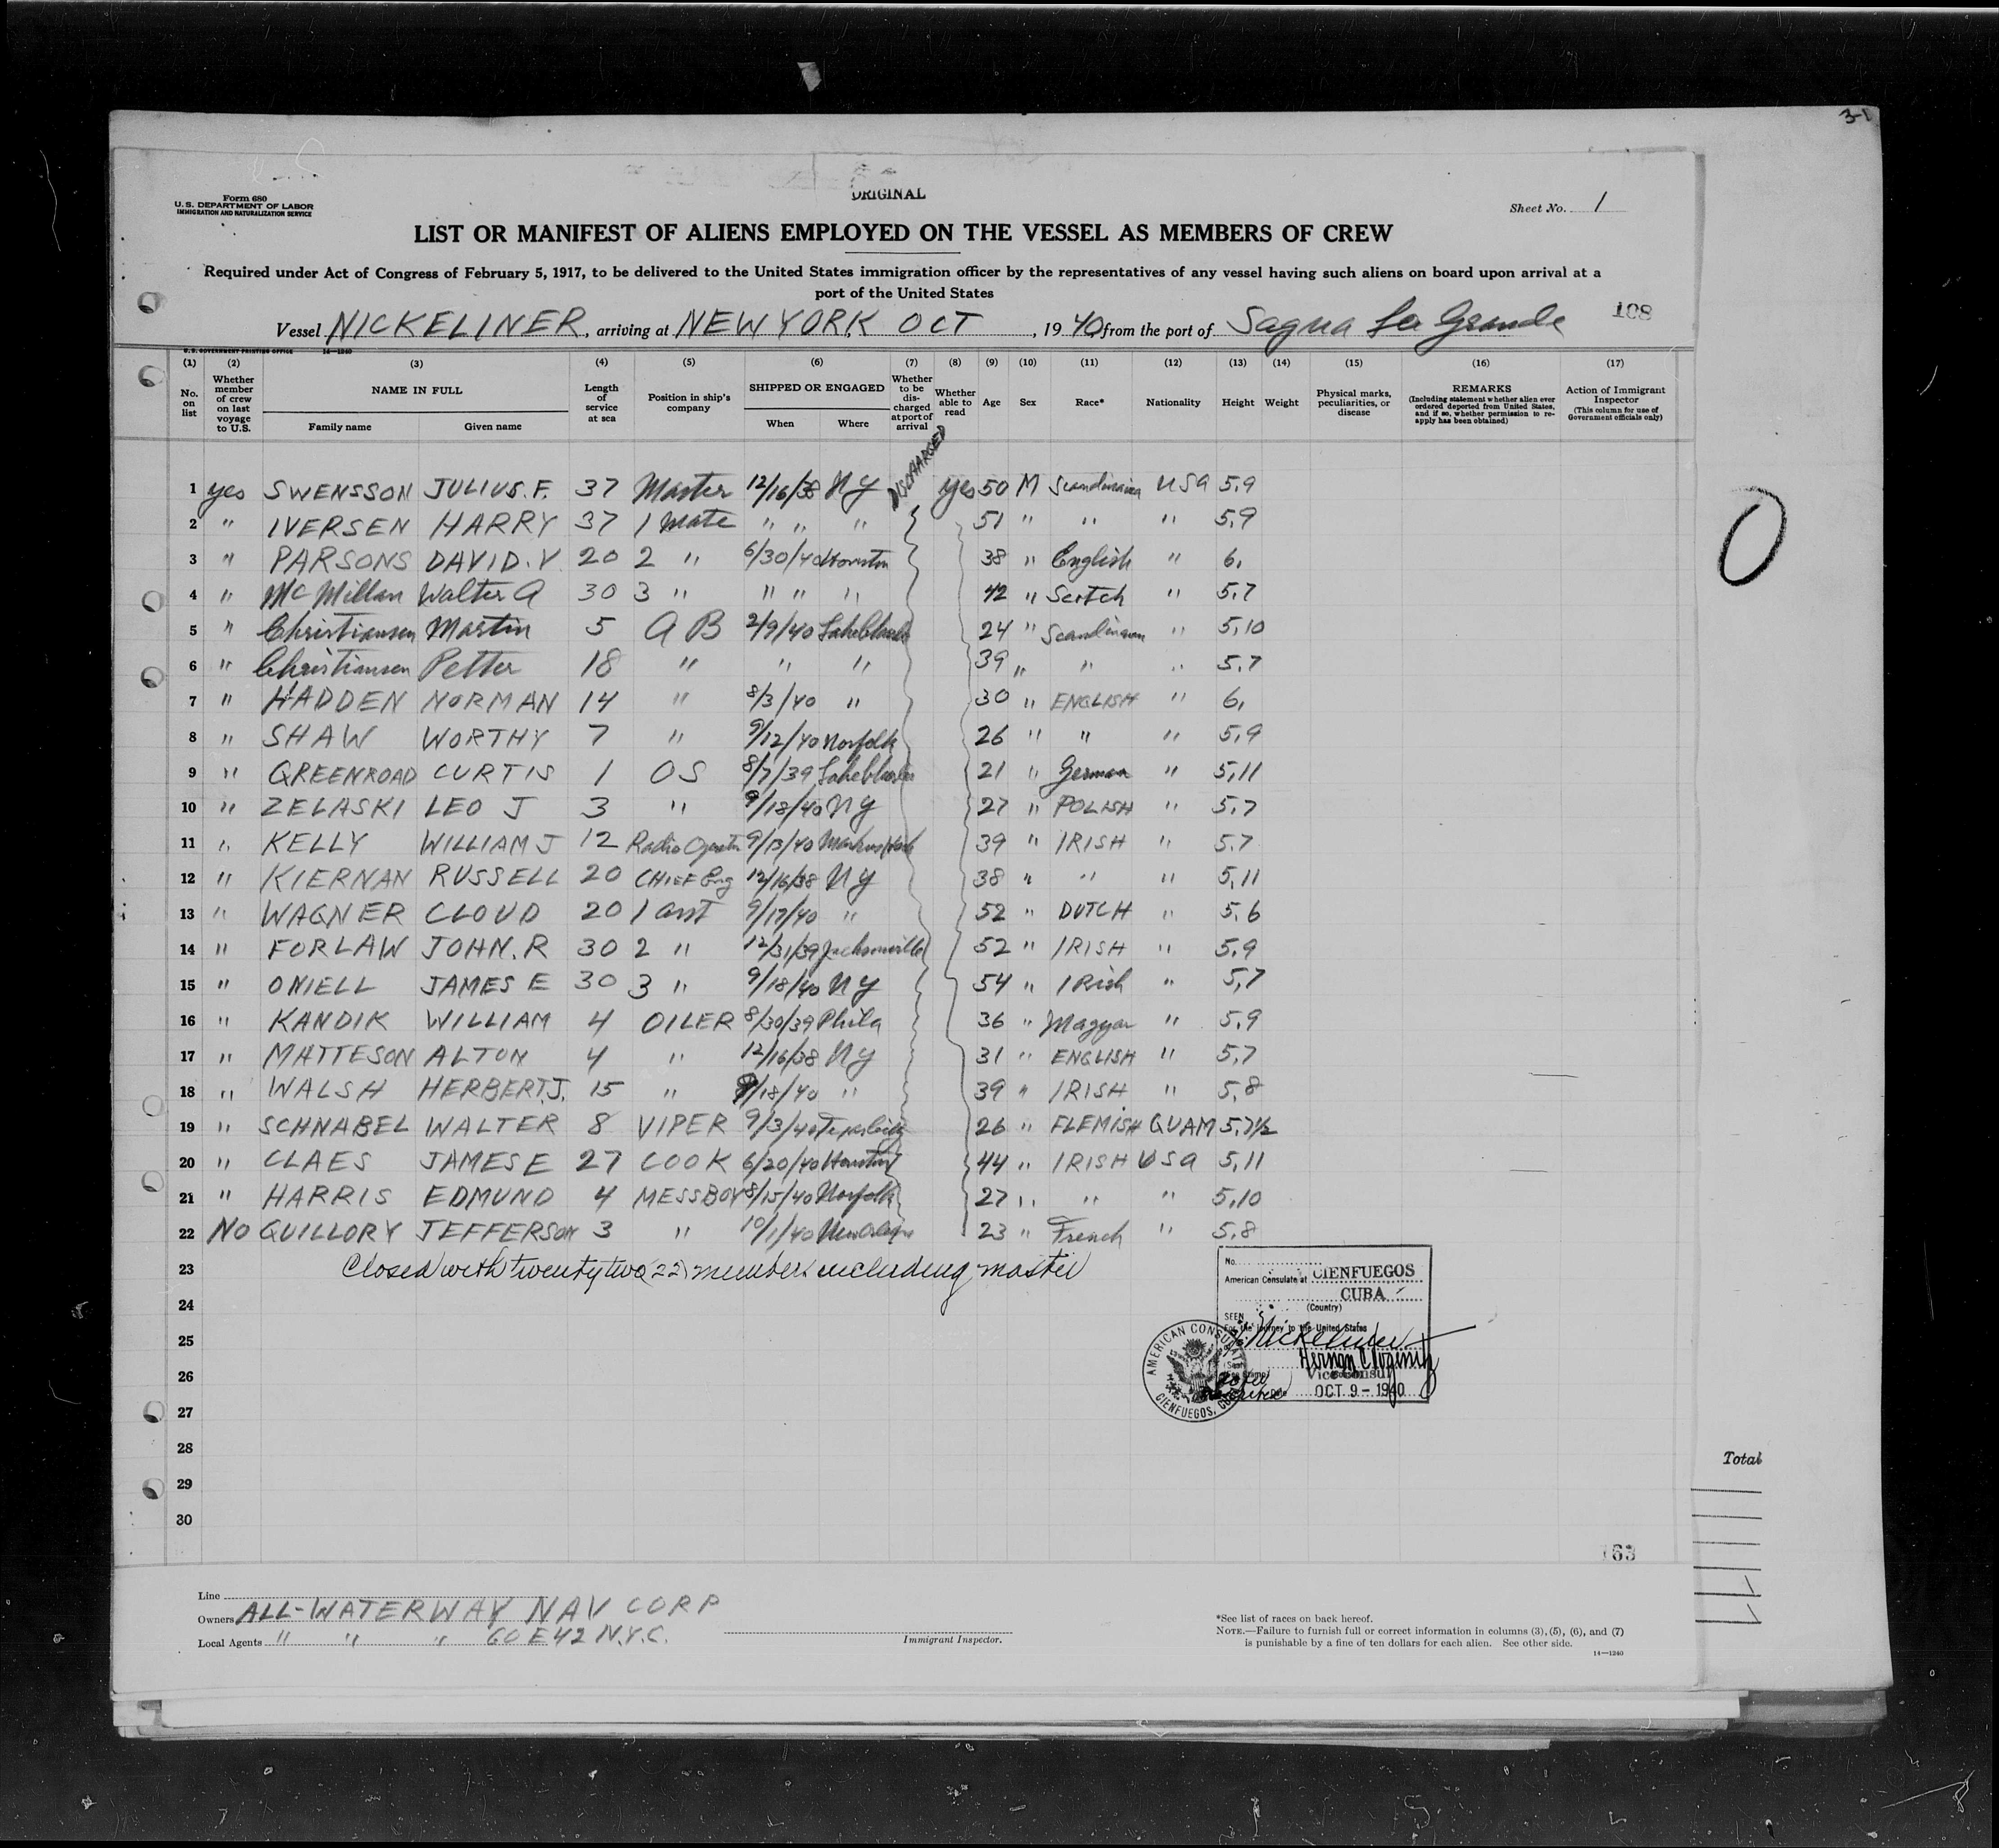 31
ORIGINAL
Form 680
U.S. DEPARTMENT OF LABOR
IMMIGRATION AND NATURALIZATION SERVICE
Sheet No. 1
LIST OR MANIFEST OF ALIENS EMPLOYED ON THE VESSEL AS MEMBERS OF CREW
Required under Act of Congress of February 5, 1917, to be delivered to the United States immigration officer by the representatives of any vessel having such aliens on board upon arrival at a
port of the United States
108
Vessel NICKELINER, arriving at NEW YORK OCT, 1940, from the port of Sagua La Grande
U.S. GOVERNMENT PRINTING OFFICE 14—1240
(1) No. on list
(2) Whether member of crew on last voyage to U.S.
(3) NAME IN FULL Family name Given name
(4) Length of service at sea
(5) Position in ship's company
(6) SHIPPED OR ENGAGED When Where
(7) Whether to be discharged at port of arrival
(8) Whether able to read
(9) Age
(10) Sex
(11) Race*
(12) Nationality
(13) Height
(14) Weight
(15) Physical marks, peculiarities, or disease
(16) REMARKS (Including statement whether alien ever ordered deported from United States, and if so, whether permission to reapply has been obtained)
(17) Action of Immigrant Inspector (This column for use of Government officials only)
DISCHARGED
1 yes SWENSSON JULIUS. F. 37 Master 12/16/38 NY yes 50 M Scandinavian USA 5.9
2 " IVERSEN HARRY 37 1 Mate " " " 51 " " " 5.9
3 " PARSONS DAVID. V. 20 2 " 6/30/40 Houston 38 " English " 6.
4 " McMillan Walter A 30 3 " " " " 42 " Scotch " 5.7
5 " Christiansen Martin 5 AB 2/9/40 Lake Charles 24 " Scandinavian " 5.10
6 " Christiansen Petter 18 " " " 39 " " " 5.7
7 " HADDEN NORMAN 14 " 8/3/40 " 30 " ENGLISH " 6,
8 " SHAW WORTHY 7 " 9/12/40 Norfolk 26 " " " 5.9
9 " GREENROAD CURTIS 1 OS 8/7/39 Lake Charles 21 " German " 5,11
10 " ZELASKI LEO J 3 " 9/18/40 NY 27 " POLISH " 5.7
11 " KELLY WILLIAM J 12 Radio Operator 9/13/40 Marcus Hook 39 " IRISH " 5.7
12 " KIERNAN RUSSELL 20 CHIEF Eng 12/16/38 NY 38 " " " 5,11
13 " WAGNER CLOUD 20 1 asst 9/17/40 " 52 " DUTCH " 5.6
14 " FORLAW JOHN. R 30 2 " 12/31/39 Jacksonville 52 " IRISH " 5.9
15 " ONIELL JAMES E 30 3 " 9/18/40 NY 54 " IRish " 5,7
16 " KANDIK WILLIAM 4 OILER 8/30/39 Phila 36 " Magyar " 5.9
17 " MATTESON ALTON 4 " 12/16/38 NY 31 " ENGLISH " 5.7
18 " WALSH HERBERT J. 15 " 9/18/40 " 39 " IRISH " 5,8
19 " SCHNABEL WALTER 8 VIPER 9/3/40 26 " FLEMISH GUAM 5.7½
20 " CLAES JAMES E 27 COOK 6/20/40 Houston 44 " IRISH USA 5,11
21 " HARRIS EDMUND 4 MESSBOY 8/15/40 Norfolk 27 " " " 5,10
22 NO GUILLORY JEFFERSON 3 " 10/1/40 New Orleans 23 " French " 5.8
23 Closed with twenty two (22) members including master
24
25
26
27
28
29
30
No.
American Consulate at CIENFUEGOS
CUBA
(Country)
SEEN
For the journey to the United States
Nickeliner
Vice Consul
OCT 9 - 1940
AMERICAN CONSULATE
CIENFUEGOS, CUBA
Total
163
Line
Owners ALL-WATERWAY NAV CORP
Local Agents " " " 60 E 42 N.Y.C.
Immigrant Inspector.
*See list of races on back hereof.
NOTE.—Failure to furnish full or correct information in columns (3), (5), (6), and (7)
is punishable by a fine of ten dollars for each alien. See other side.
14—1240